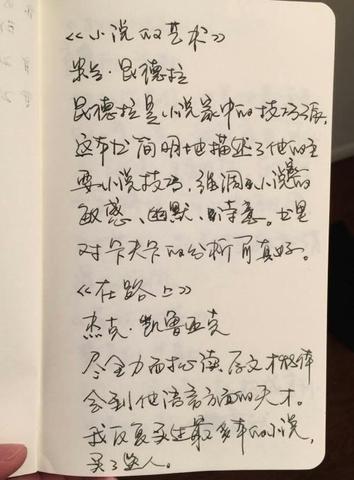 《小说的艺术》
米兰·昆德拉
昆德拉是小说家中的技巧派,
这本书简明地描述了他的主
要小说技巧,强调小说的
敏感、幽默、诗意。书里
对卡夫卡的分析可真好。
《在路上》
杰克·凯鲁亚克
尽全力 读原文才能体
会到他语言方面的天才。
我反复买过最多本的小说,
买了送人。